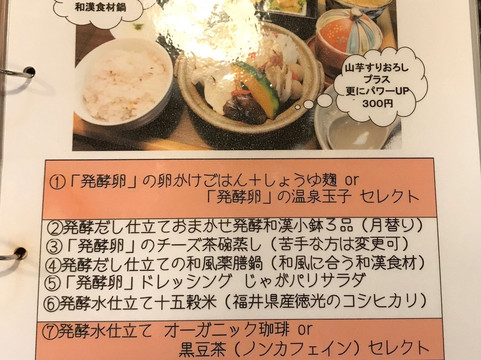 和漢食材鍋
山芋すりおろし
プラス
更にパワーUP
300円
①「発酵卵」の卵かけごはん＋しょうゆ麹 or
「発酵卵」の温泉玉子 セレクト
②発酵だし仕立ておまかせ発酵和漢小鉢３品（月替り）
③「発酵卵」のチーズ茶碗蒸し（苦手な方は変更可）
④発酵だし仕立ての和風薬膳鍋（和風に合う和漢食材）
⑤「発酵卵」ドレッシング じゃがパリサラダ
⑥発酵水仕立て十五穀米（福井県産徳光のコシヒカリ）
⑦発酵水仕立て オーガニック珈琲 or
黒豆茶（ノンカフェイン）セレクト